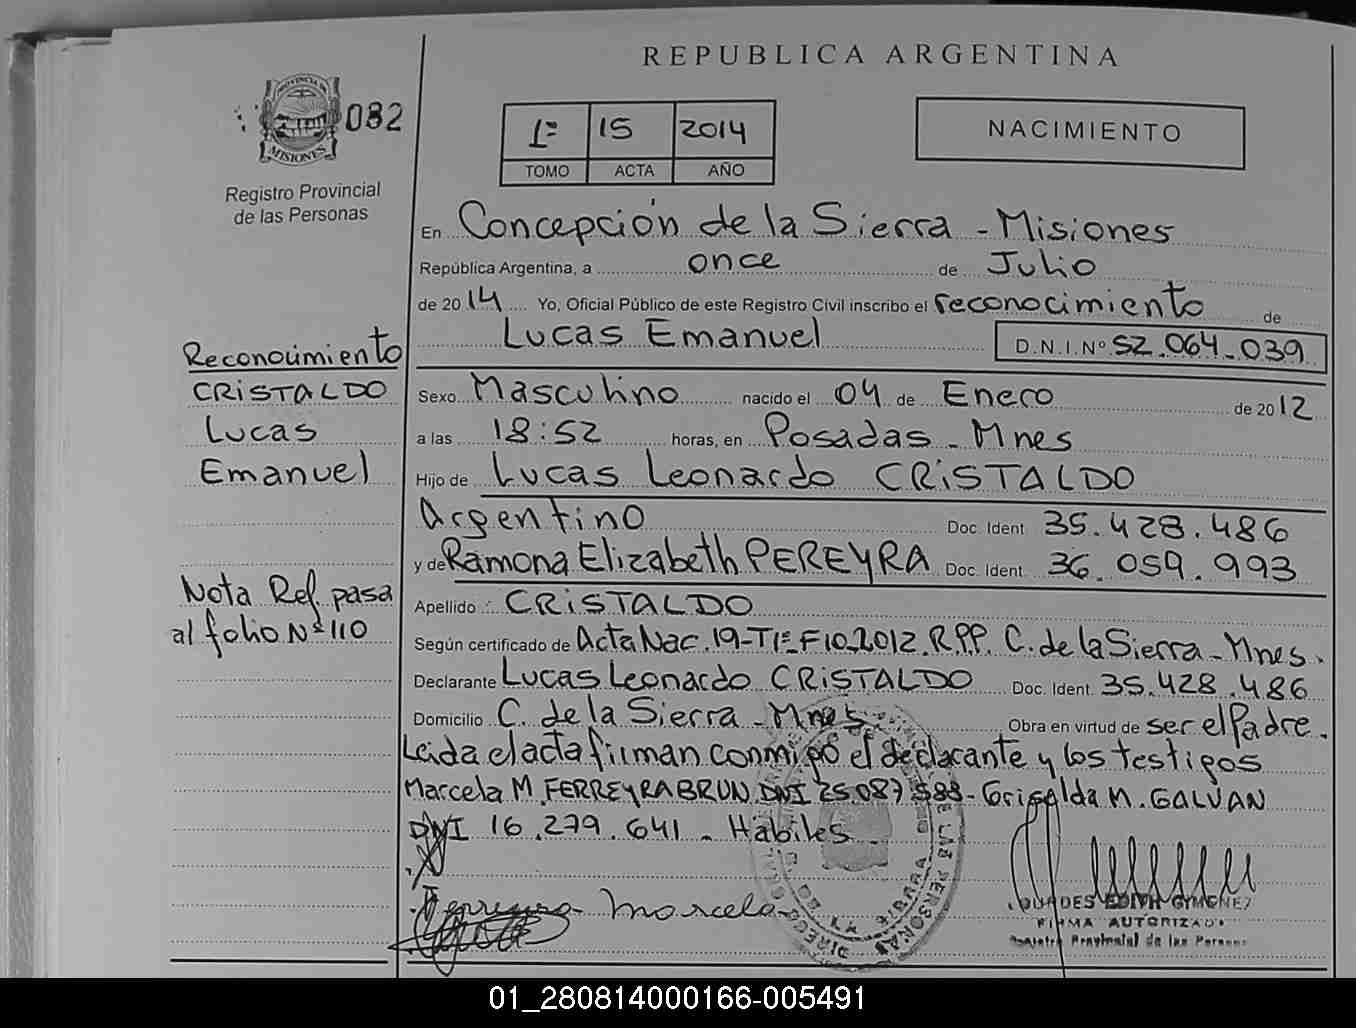 REPUBLICA ARGENTINA
PROVINCIA DE
MISIONES
082
Registro Provincial
de las Personas
1º 15 2014
TOMO ACTA AÑO
NACIMIENTO
En Concepción de la Sierra - Misiones
República Argentina, a once de Julio
de 2014 Yo, Oficial Público de este Registro Civil inscribo el reconocimiento de
Lucas Emanuel D.N.I.Nº 52.064.039
Reconocimiento
CRISTALDO
Lucas
Emanuel
Nota Ref. pasa
al folio Nº 110
Sexo Masculino nacido el 04 de Enero de 2012
a las 18:52 horas, en Posadas - Mnes
Hijo de Lucas Leonardo CRISTALDO
Argentino Doc. Ident. 35.428.486
y de Ramona Elizabeth PEREYRA Doc. Ident. 36.059.993
Apellido CRISTALDO
Según certificado de Acta Nac. 19-T1º-F10-2012. R.P.P. C. de la Sierra - Mnes.
Declarante Lucas Leonardo CRISTALDO Doc. Ident. 35.428.486
Domicilio C. de la Sierra - Mnes. Obra en virtud de ser el Padre.
Leida el acta firman conmigo el declarante y los testigos
Marcela M. FERREYRA BRUN DNI 25.087.588 - Griselda N. GALVAN
DNI 16.279.641 - Hábiles
Ferreyra Marcela
LOURDES EDITH GYMENEZ
FIRMA AUTORIZADA
Registro Provincial de las Personas
01_280814000166-005491